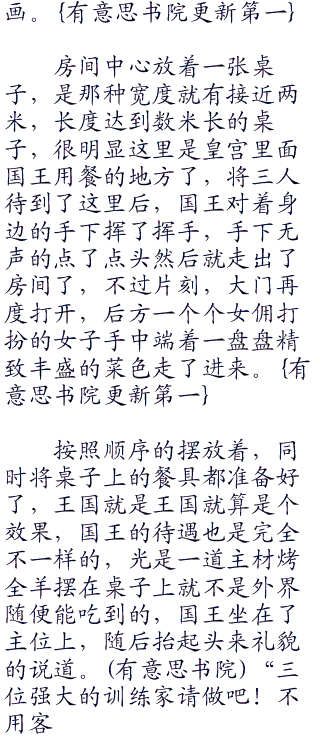 画。{有意思书院更新第一}
房间中心放着一张桌
子，是那种宽度就有接近两
米，长度达到数米长的桌
子，很明显这里是皇宫里面
国王用餐的地方了，将三人
待到了这里后，国王对着身
边的手下挥了挥手，手下无
声的点了点头然后就走出了
房间了，不过片刻，大门再
度打开，后方一个个女佣打
扮的女子手中端着一盘盘精
致丰盛的菜色走了进来。{有
意思书院更新第一}
按照顺序的摆放着，同
时将桌子上的餐具都准备好
了，王国就是王国就算是个
效果，国王的待遇也是完全
不一样的，光是一道主材烤
全羊摆在桌子上就不是外界
随便能吃到的，国王坐在了
主位上，随后抬起头来礼貌
的说道。(有意思书院)“三
位强大的训练家请做吧！不
用客